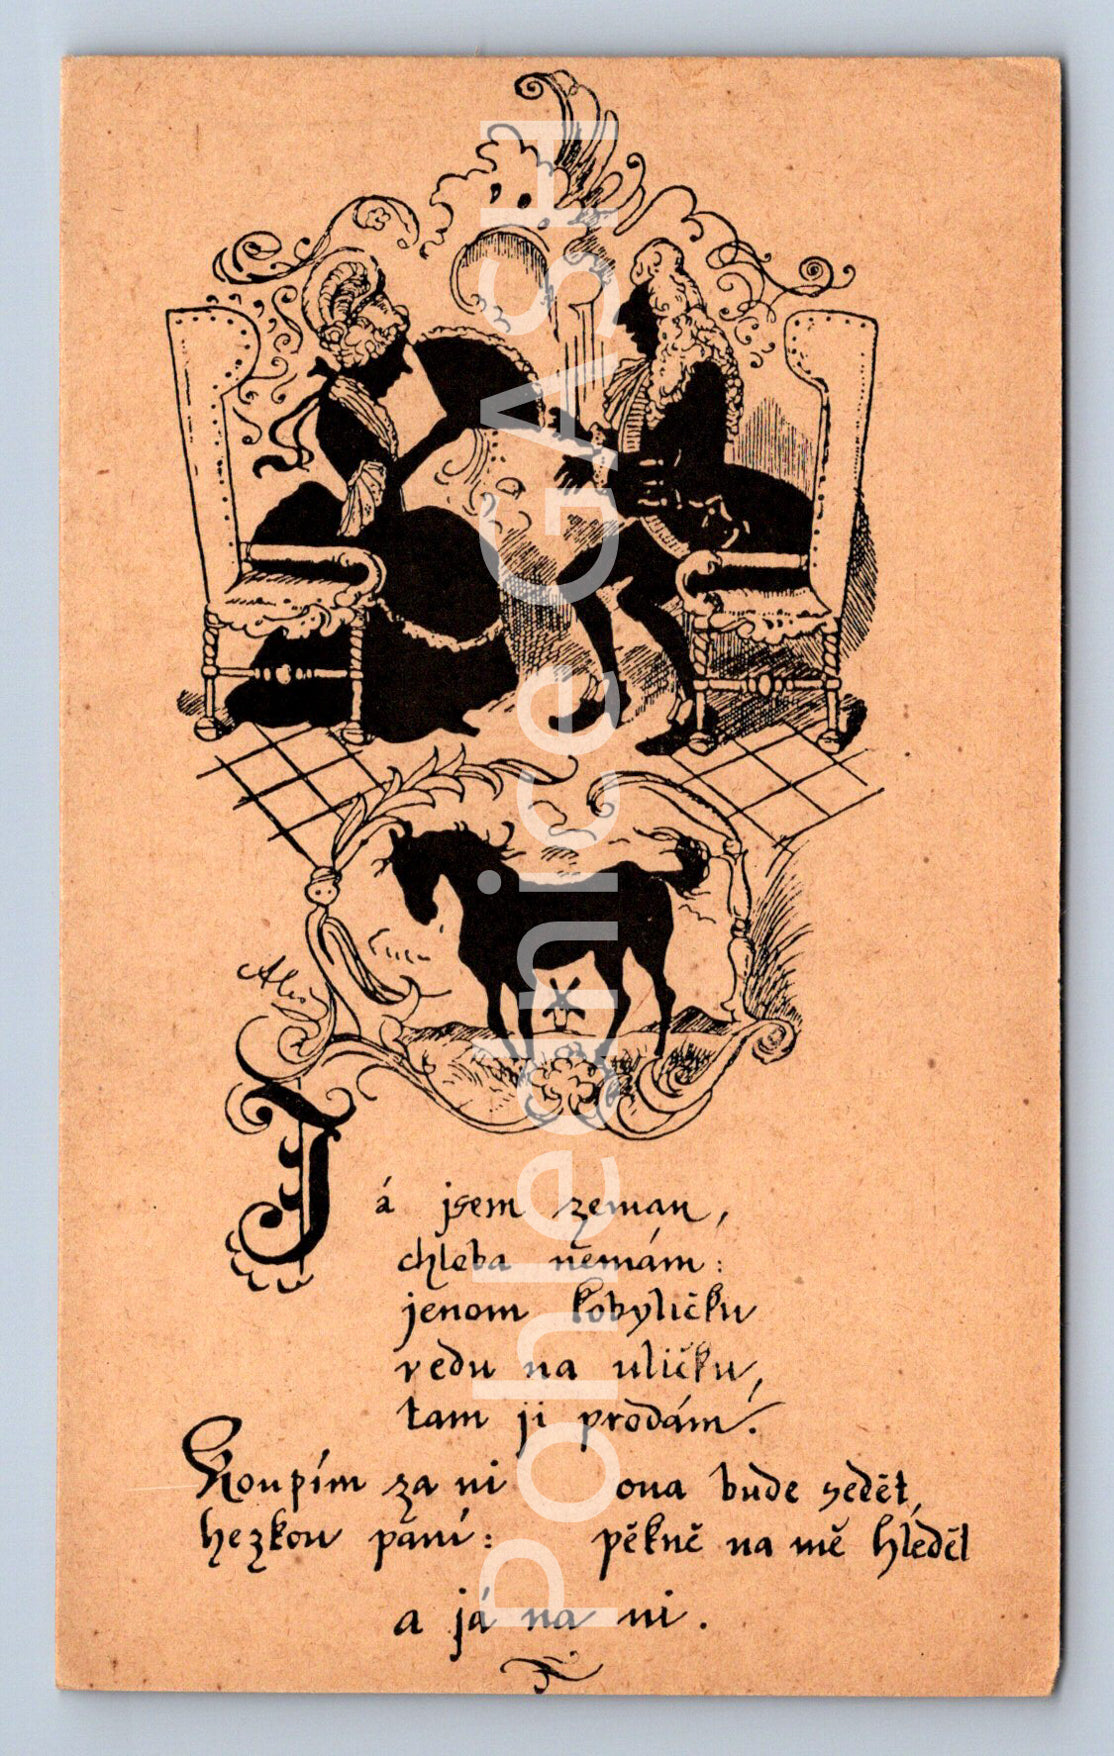 Aleš
Já jsem zeman,
chleba nemám:
jenom kobyličku
vedu na uličku,
tam ji prodám!
Koupím za ni
hezkou paní:
ona bude sedět,
pěkně na mě hledět
a já na ni.
Pohlednice GASH